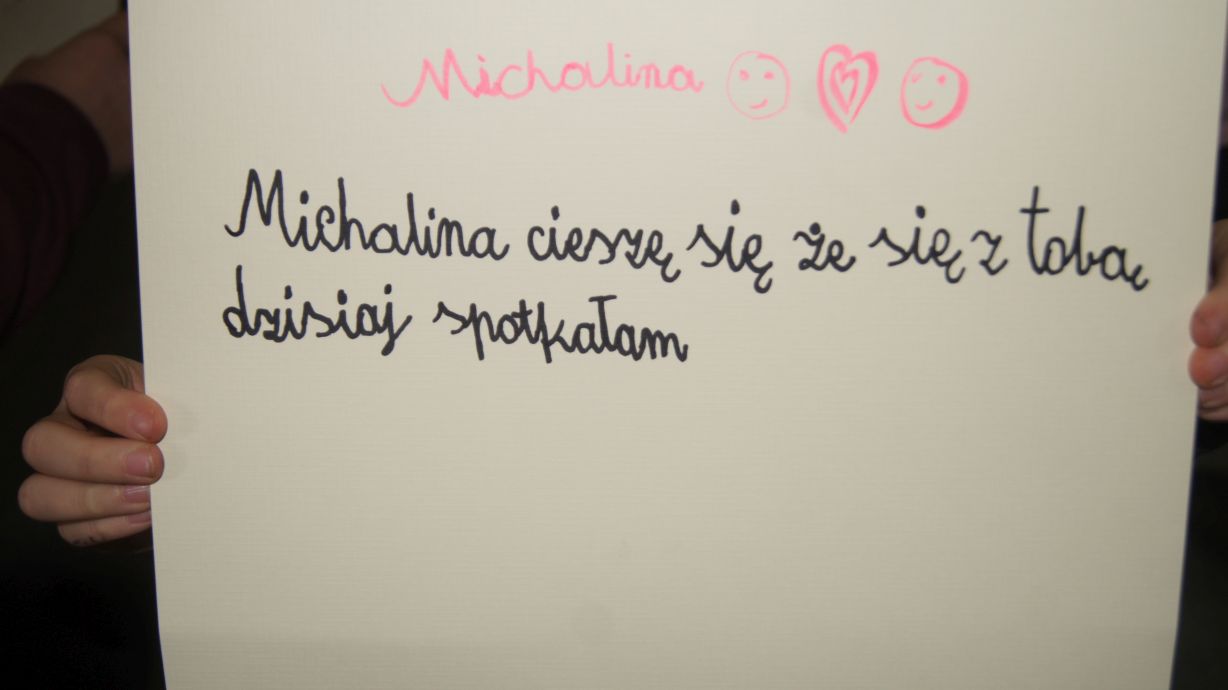 Michalina
Michalina cieszę się że się z tobą
dzisiaj spotkałam